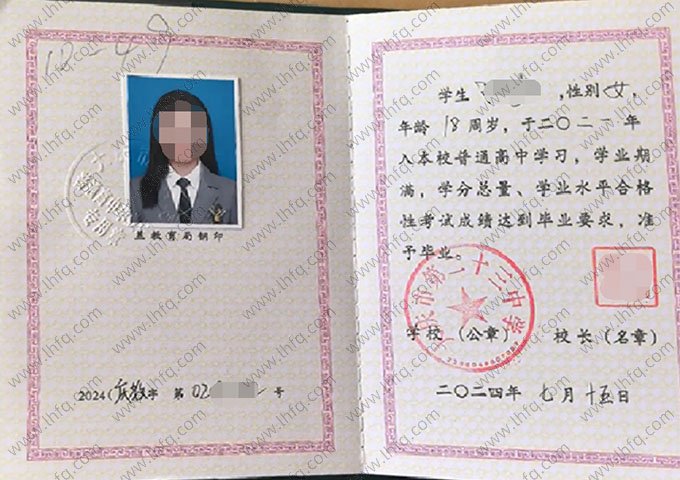 盖教育局钢印
2024(庆教字 第 02 号
学生 ,性别 女,
年龄 18 周岁，于二〇二一年
入本校普通高中学习，学业期
满，学分总量、学业水平合格
性考试成绩达到毕业要求，准
予毕业。
庆市第二十三中学
学校（公章） 校长（名章）
二〇二四年 七月 十五日
www.lhfq.com